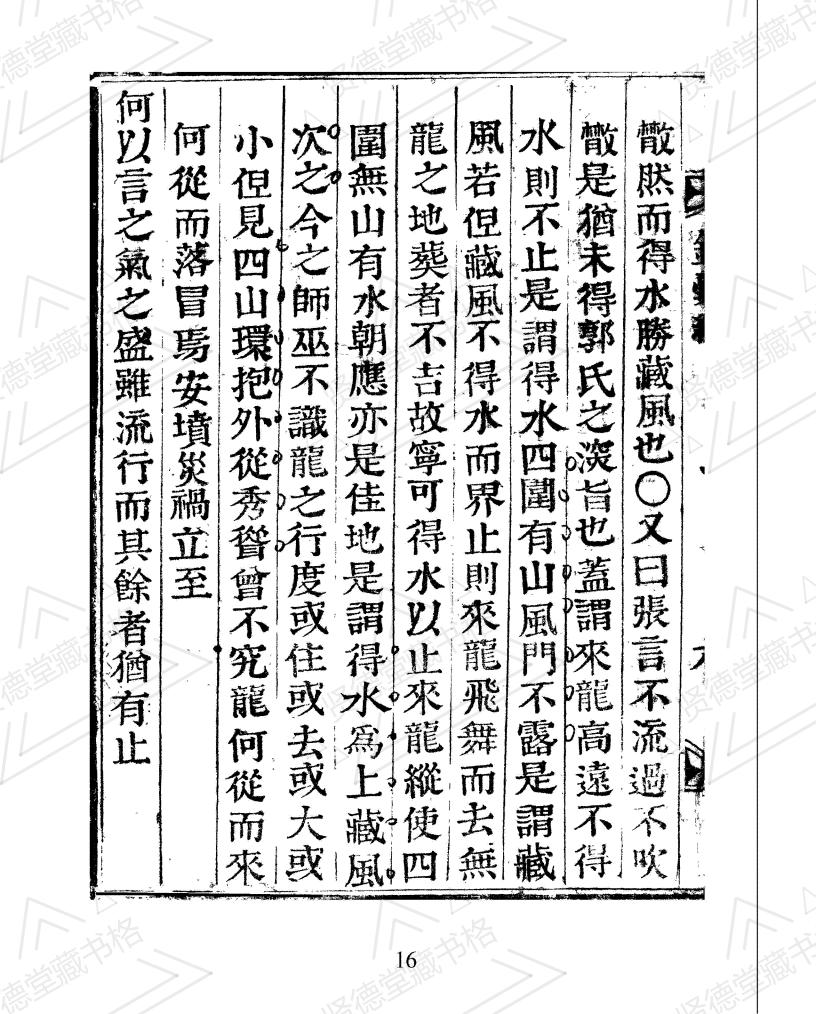 㪚然而得水勝藏風也〇又曰張言不流過不吹
㪚是猶未得郭氏之深旨也蓋謂來龍高遠不得
水則不止是謂得水四圍有山風門不露是謂藏
風若但藏風不得水而界止則來龍飛舞而去無
龍之地葬者不吉故寧可得水以止來龍縱使四
圍無山有水朝應亦是佳地是謂得水為上藏風
次之今之師巫不識龍之行度或住或去或大或
小但見四山環抱外從秀聳曾不究龍何從而來
何從而落冒焉安墳災禍立至
何以言之氣之盛雖流行而其餘者猶有止
16
贤德堂藏书格